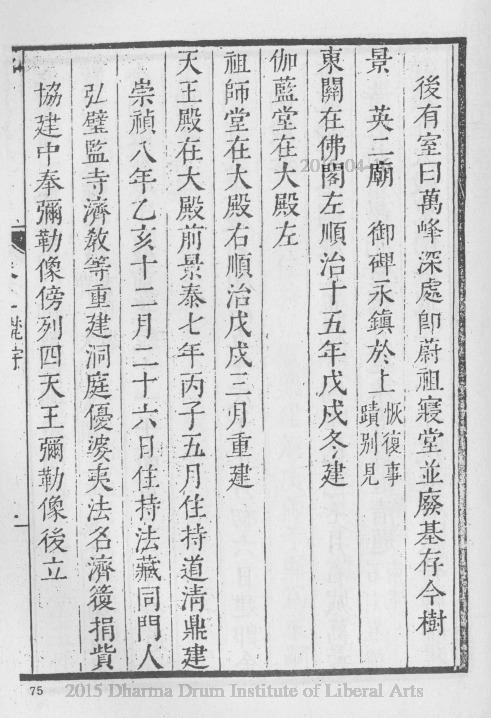 後有室曰萬峰深處卽蔚祖寢堂並廢基存今樹
景 英二廟 御碑永鎮於上恢復事蹟别見
東關在佛閣左順治十五年戊戌冬建
伽藍堂在大殿左
祖師堂在大殿右順治戊戌三月重建
天王殿在大殿前景泰七年丙子五月住持道清鼎建
崇禎八年乙亥十二月二十六日住持法藏同門人
弘璧監寺濟教等重建洞庭優婆夷法名濟篗捐貲
協建中奉彌勒像傍列四天王彌勒像後立
75
2015 Dharma Drum Institute of Liberal Arts